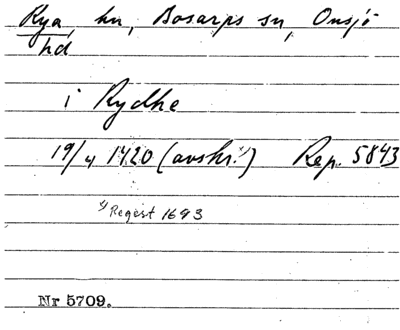 Rya, hn, Bosarps sn, Onsjö
hd
i Rydhe
19/4 1420 (avskr.¹⁾) Rep. 5843
¹⁾ Regest 1693
Nr 5709.